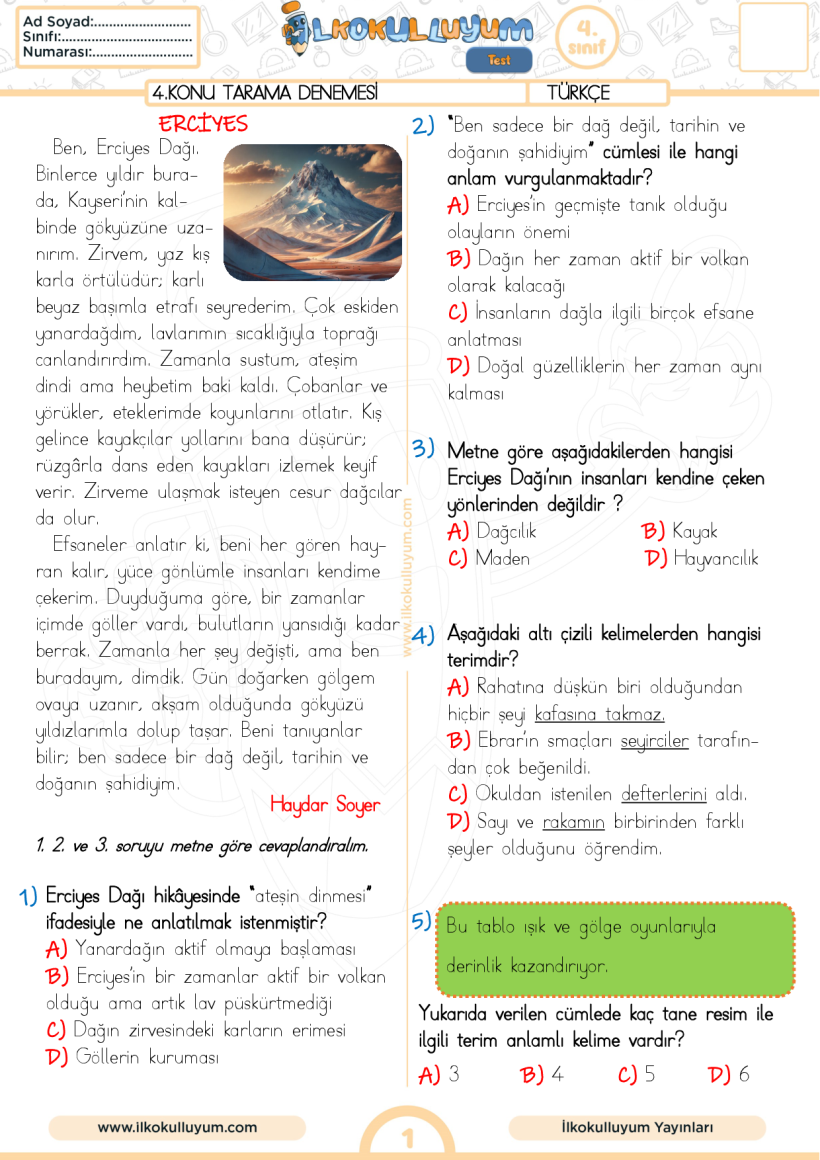 Ad Soyad:..........................
Sınıfı:...................................
Numarası:...........................
İLKOKULLUYUM
Test
4.
sınıf
4.KONU TARAMA DENEMESİ
TÜRKÇE
ERCİYES
Ben, Erciyes Dağı.
Binlerce yıldır bura-
da, Kayseri'nin kal-
binde gökyüzüne uza-
nırım. Zirvem, yaz kış
karla örtülüdür; karlı
beyaz başımla etrafı seyrederim. Çok eskiden
yanardağdım, lavlarımın sıcaklığıyla toprağı
canlandırırdım. Zamanla sustum, ateşim
dindi ama heybetim baki kaldı. Çobanlar ve
yörükler, eteklerimde koyunlarını otlatır. Kış
gelince kayakçılar yollarını bana düşürür;
rüzgârla dans eden kayakları izlemek keyif
verir. Zirveme ulaşmak isteyen cesur dağcılar
da olur.
Efsaneler anlatır ki, beni her gören hay-
ran kalır, yüce gönlümle insanları kendime
çekerim. Duyduğuma göre, bir zamanlar
içimde göller vardı, bulutların yansıdığı kadar
berrak. Zamanla her şey değişti, ama ben
buradayım, dimdik. Gün doğarken gölgem
ovaya uzanır, akşam olduğunda gökyüzü
yıldızlarımla dolup taşar. Beni tanıyanlar
bilir; ben sadece bir dağ değil, tarihin ve
doğanın şahidiyim.
Haydar Soyer
1. 2. ve 3. soruyu metne göre cevaplandıralım.
1) Erciyes Dağı hikâyesinde "ateşin dinmesi"
ifadesiyle ne anlatılmak istenmiştir?
A) Yanardağın aktif olmaya başlaması
B) Erciyes'in bir zamanlar aktif bir volkan
olduğu ama artık lav püskürtmediği
C) Dağın zirvesindeki karların erimesi
D) Göllerin kuruması
2) "Ben sadece bir dağ değil, tarihin ve
doğanın şahidiyim" cümlesi ile hangi
anlam vurgulanmaktadır?
A) Erciyes'in geçmişte tanık olduğu
olayların önemi
B) Dağın her zaman aktif bir volkan
olarak kalacağı
C) İnsanların dağla ilgili birçok efsane
anlatması
D) Doğal güzelliklerin her zaman aynı
kalması
3) Metne göre aşağıdakilerden hangisi
Erciyes Dağı'nın insanları kendine çeken
yönlerinden değildir ?
A) Dağcılık B) Kayak
C) Maden D) Hayvancılık
4) Aşağıdaki altı çizili kelimelerden hangisi
terimdir?
A) Rahatına düşkün biri olduğundan
hiçbir şeyi kafasına takmaz.
B) Ebrar'ın smaçları seyirciler tarafın-
dan çok beğenildi.
C) Okuldan istenilen defterlerini aldı.
D) Sayı ve rakamın birbirinden farklı
şeyler olduğunu öğrendim.
5) Bu tablo ışık ve gölge oyunlarıyla
derinlik kazandırıyor.
Yukarıda verilen cümlede kaç tane resim ile
ilgili terim anlamlı kelime vardır?
A) 3 B) 4 C) 5 D) 6
www.ilkokulluyum.com
www.ilkokulluyum.com
1
İlkokulluyum Yayınları